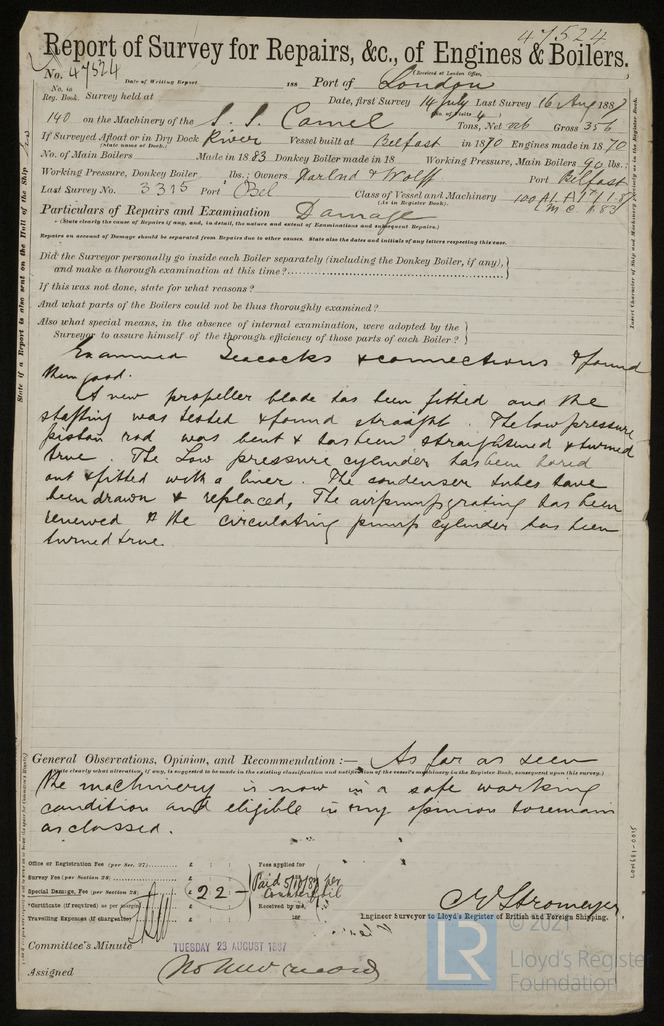 47524
Report of Survey for Repairs, &c., of Engines & Boilers.
No. 47524 Date of Writing Report 188 Port of London (Received at London Office,
No. in Reg. Book. Survey held at Date, first Survey 14 July Last Survey 16 Aug 1887
(No. of Visits 4)
140 on the Machinery of the S. S. Camel Tons, Net Gross 356
If Surveyed Afloat or in Dry Dock River Vessel built at Belfast in 1870 Engines made in 1870
(State name of Dock.)
No. of Main Boilers Made in 1883 Donkey Boiler made in 18 Working Pressure, Main Boilers 90 lbs.;
Working Pressure, Donkey Boiler lbs.; Owners Harland & Wolff Port Belfast
Last Survey No. 3315 Port Bel Class of Vessel and Machinery 100 A1
(As in Register Book.) LMC 83
Particulars of Repairs and Examination Damage
(State clearly the cause of Repairs if any, and, in detail, the nature and extent of Examinations and subsequent Repairs.)
Repairs on account of Damage should be separated from Repairs due to other causes. State also the dates and initials of any letters respecting this case.
Did the Surveyor personally go inside each Boiler separately (including the Donkey Boiler, if any),
and make a thorough examination at this time?
If this was not done, state for what reasons?
And what parts of the Boilers could not be thus thoroughly examined?
Also what special means, in the absence of internal examination, were adopted by the
Surveyor to assure himself of the thorough efficiency of those parts of each Boiler?
Examined Seacocks & connections & found
them good.
A new propeller blade has been fitted and the
shafting was tested & found straight. The low pressure
piston rod was bent & has been straightened & turned
true. The Low pressure cylinder has been bored
out & fitted with a liner. The condenser tubes have
been drawn & replaced, The airpump grating has been
renewed & the circulating pump cylinder has been
turned true.
General Observations, Opinion, and Recommendation :— As far as seen
(State clearly what alteration, if any, is suggested to be made in the existing classification and notification of the vessel's machinery in the Register Book, consequent upon this survey.)
the machinery is now in a safe working
condition and eligible in my opinion to remain
as classed.
Office or Registration Fee (per Sec. 27) £ : : Fees applied for
Survey Fee (per Section 28) £ : :
Special Damage, Fee (per Section 28) £ 2 2 - Paid 5/11/87 per Counterfoil
*Certificate (if required) as per margin £ : : Received by me,
Travelling Expenses (if chargeable) £ : : 188
C E Stromeyer
Engineer Surveyor to Lloyd's Register of British and Foreign Shipping.
Committee's Minute TUESDAY 23 AUGUST 1887
Assigned No new record
State if a Report is also sent on the Hull of the Ship
Insert Character of Ship and Machinery precisely as in the Register Book.
LON681-0015
© 2021
LR
Lloyd's Register
Foundation